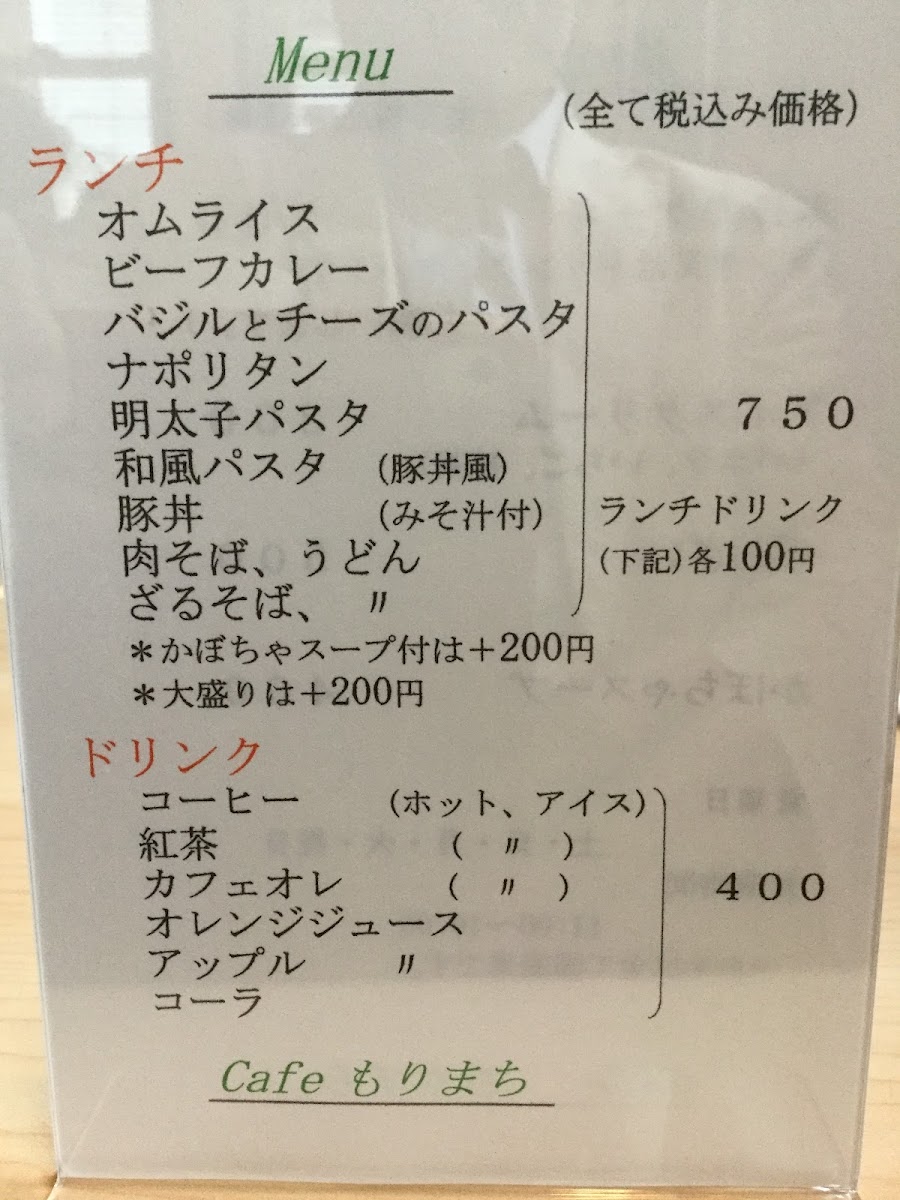 Menu
(全て税込み価格)
ランチ
オムライス
ビーフカレー
バジルとチーズのパスタ
ナポリタン
明太子パスタ
７５０
和風パスタ (豚丼風)
豚丼 (みそ汁付)
ランチドリンク
肉そば、うどん
(下記)各100円
ざるそば、 〃
＊かぼちゃスープ付は＋200円
＊大盛りは＋200円
ドリンク
コーヒー (ホット、アイス)
紅茶 ( 〃 )
カフェオレ ( 〃 )
４００
オレンジジュース
アップル 〃
コーラ
Cafe もりまち